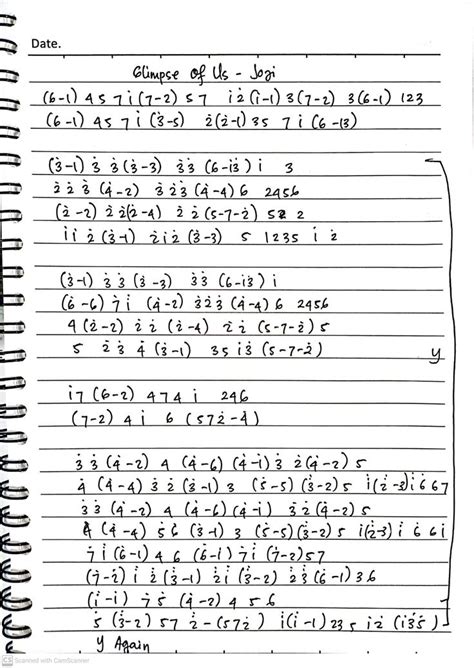 Date.
Glimpse of Us - Joji
(6-1) 4 5 7 i̇ (7-2) 5 7 i̇ 2̇ (i̇-1) 3 (7-2) 3 (6-1) 1 2 3
(6-1) 4 5 7 i̇ (3̇-5) 2̇ (2̇-1) 3 5 7 i̇ (6-13)
(3̇-1) 3̇ 3̇ (3̇-3) 3̇ 3̇ (6-i̇3) i̇ 3
2̇ 2̇ 3̇ (4̇-2) 3̇ 2̇ 3̇ (4̇-4) 6 2 4 5 6
(2̇-2) 2̇ 2̇ (2̇-4) 2̇ 2̇ (5-7-2̇) 5 2 2
i̇ i̇ 2̇ (3̇-1) 2̇ i̇ 2̇ (3̇-3) 5 1 2 3 5 i̇ 2̇
(3̇-1) 3̇ 3̇ (3̇-3) 3̇ 3̇ (6-i̇3) i̇
(6̇-6) 7̇ i̇ (4̇-2) 3̇ 2̇ 3̇ (4̇-4) 6 2 4 5 6
4 (2̇-2) 2̇ 2̇ (2̇-4) 2̇ 2̇ (5-7-2̇) 5
5 2̇ 3̇ 4̇ (3̇-1) 3 5 i̇ 3̇ (5-7-2̇)
y
i̇ 7 (6-2) 4 7 4 i̇ 2 4 6
(7-2) 4 i̇ 6 (5 7 2̇-4)
3̇ 3̇ (4̇-2) 4 (4̇-6) (4̇-1) 3̇ 2̇ (4̇-2) 5
4̇ (4̇-4) 3̇ 2̇ (3̇-1) 3 (5̇-5) (3̇-2) 5 i̇ (2̇-3) i̇ 6 6 7
3̇ 3̇ (4̇-2) 4 (4̇-6) (4̇-i̇) 3̇ 2̇ (4̇-2) 5
4̇ (4̇-4) 5̇ 6̇ (3̇-1) 3 (5̇-5) (3̇-2) 5 i̇ (2̇-3) i̇ 6 6 i̇
7̇ i̇ (6̇-1) 4 6 (6̇-1) 7̇ i̇ (7̇-2) 5 7
(7̇-2) i̇ 2̇ (3̇-1) 2̇ i̇ (3̇-2) 2̇ 3̇ (6̇-1) 3 6
(i̇-i̇) 7̇ 5̇ (4̇-2) 4 5 6
5 (3̇-2) 5 7 2̇-(5 7 2̇) i̇ (i̇-1) 2 3 5 i̇ 2̇ (i̇ 3̇ 5̇)
y Again
CS Scanned with CamScanner